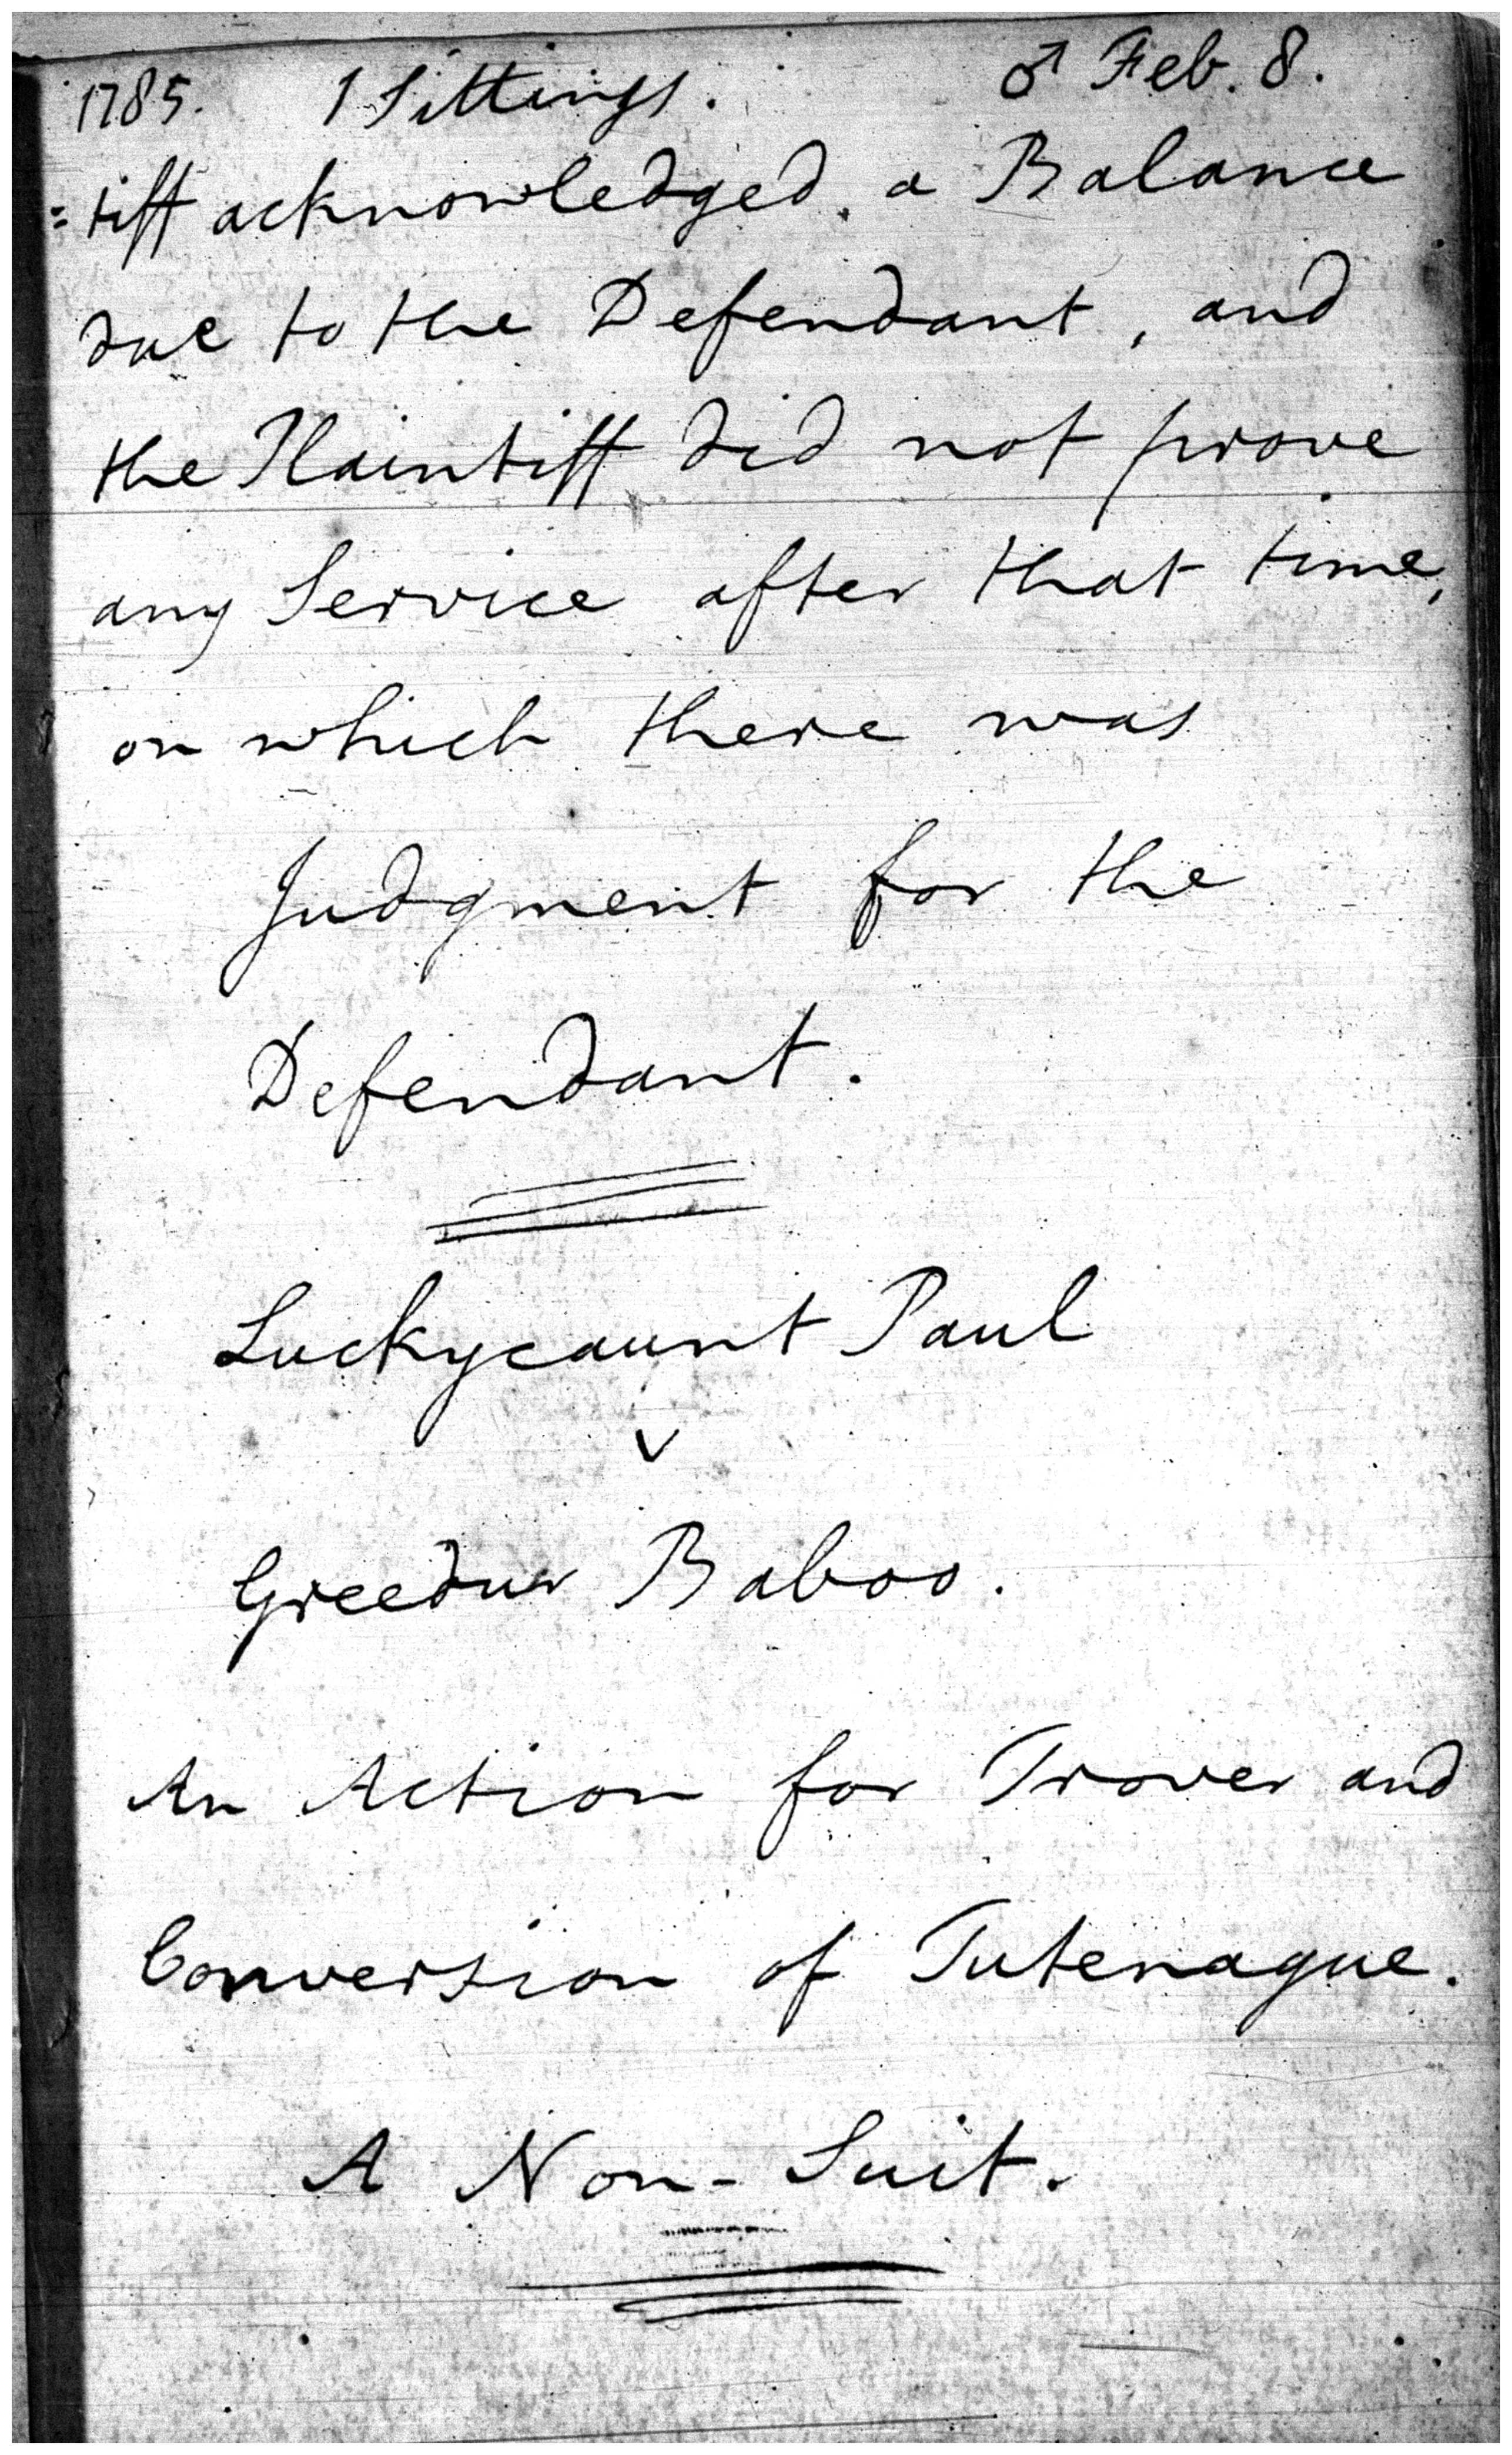 1785. 1 Sittings. ♂ Feb. 8.
=tiff acknowledged a Balance
due to the Defendant, and
the Plaintiff did not prove
any Service after that time,
on which there was
Judgment for the
Defendant.
Luckycaunt Paul
v
Greedur Baboo.
An Action for Trover and
Conversion of Tutenague.
A Non-Suit.